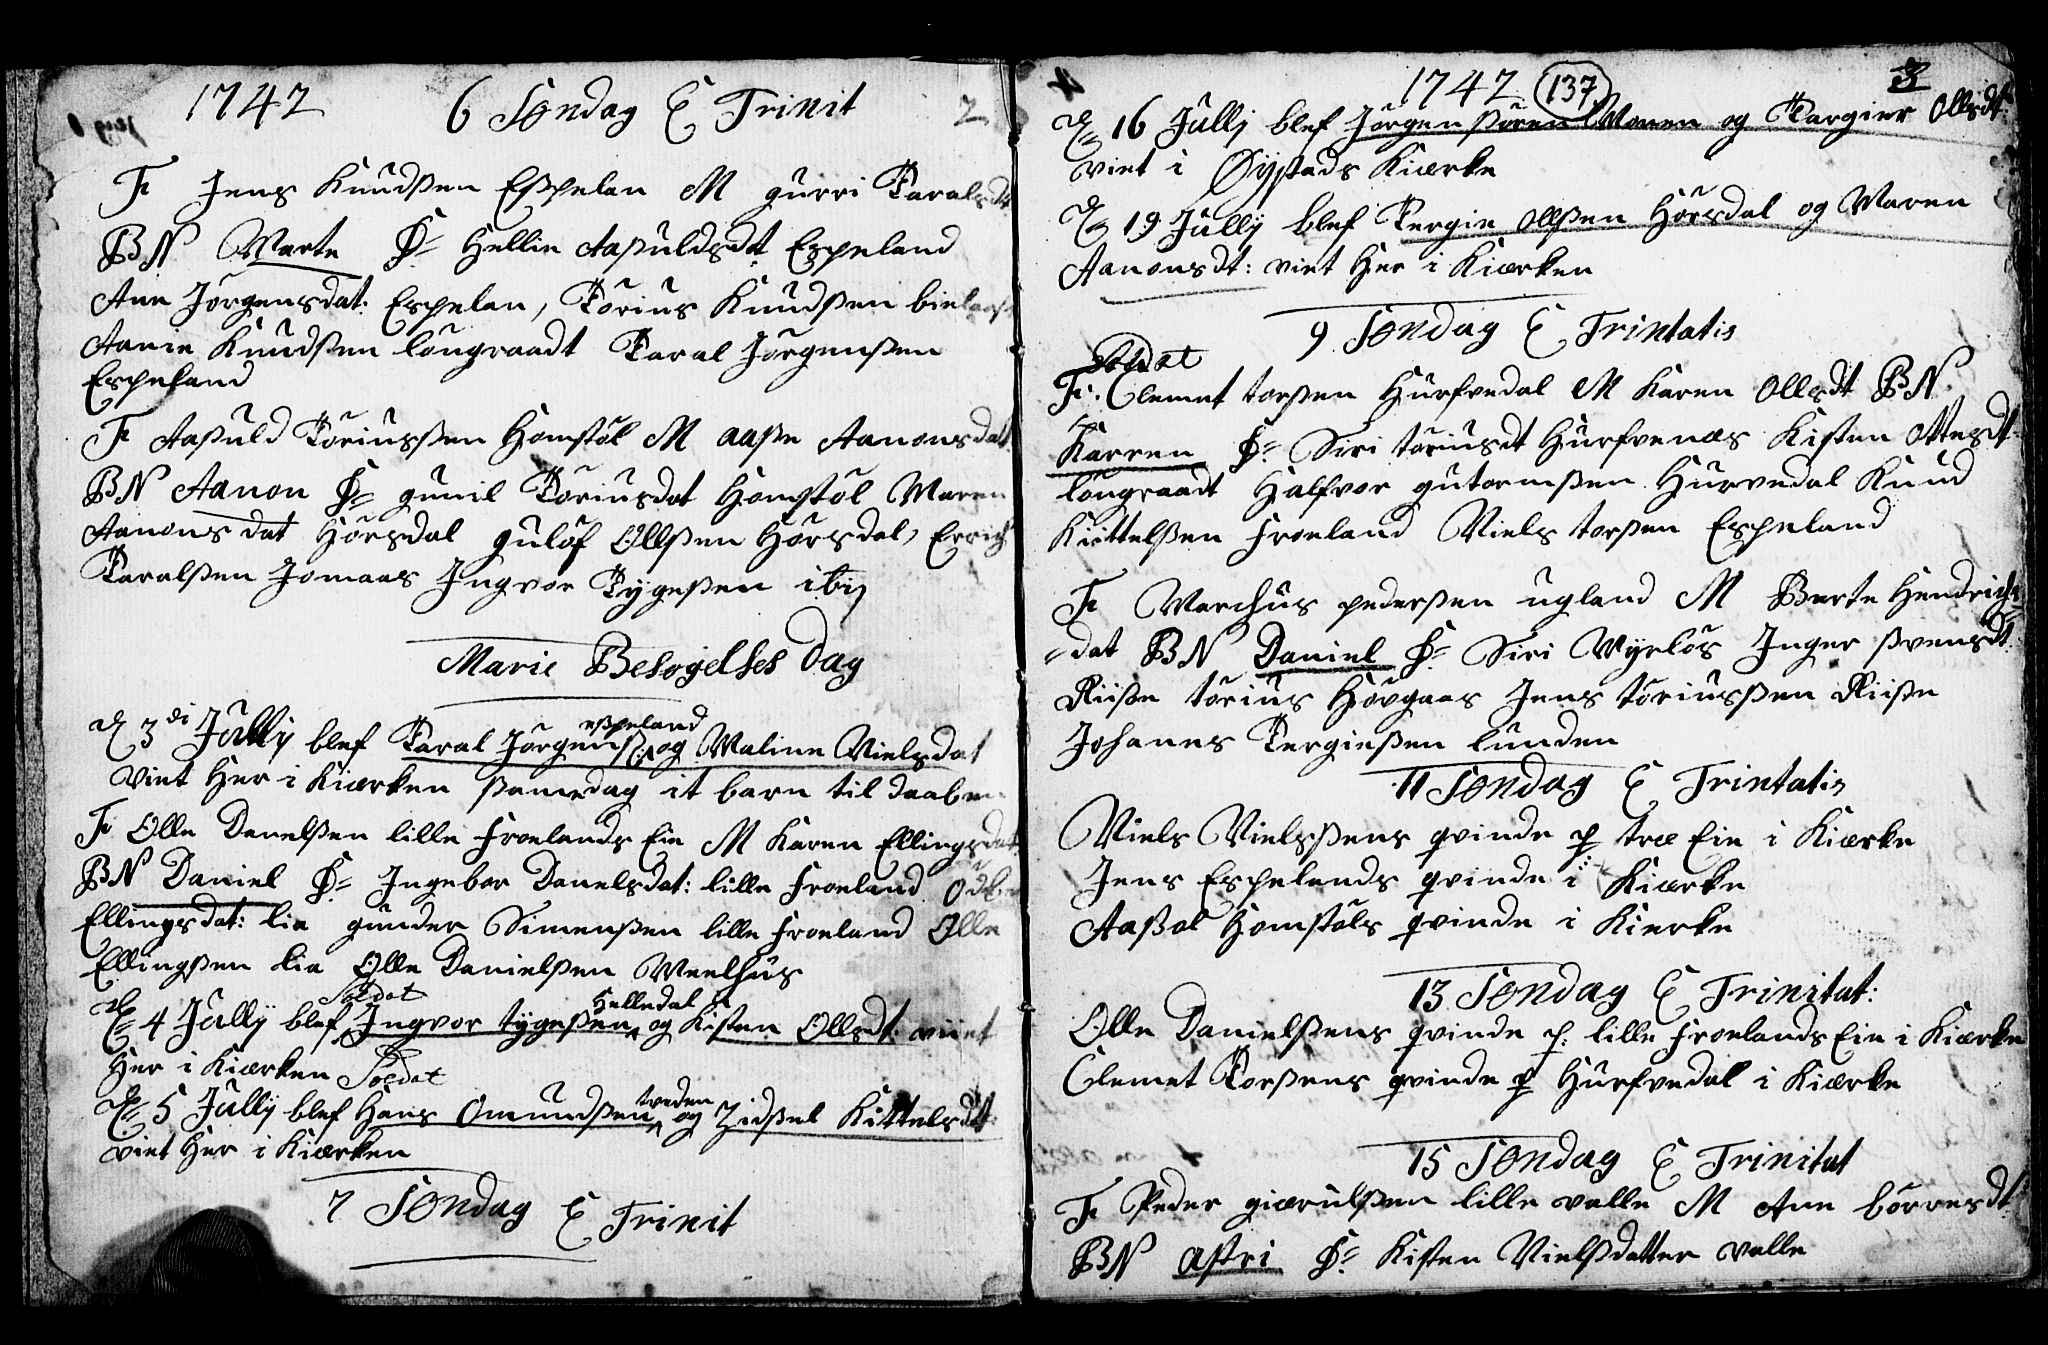 1742 6 Søndag E Trinit 2
F Jens Knudsßen Eßpelan M gurri Taralsdt
BN Marte F= Hellie Aaßuldsdt Espeland
Ane Jörgensdat: Espelan, Torius Knudßen
Aanie Knudßen löngraadt Taral Jörgenßen
Espeland
F Aaßuld Toriusßen Homstöl M aaße Aanonsdatt
BN Aanon F= gunil Toriusdat Homstöl Maren
Aanons dat Hörsdal gulöf Ollßen Hörsdal, Errich
Taralßen Jomaas Ingvor Tygeßen ibij
Marie Besøgelses Dag
D 3di Jullij blef Taral Jörgenß: og Maline Nielsdat
eßpeland
Viet Her i Kiærken ßamedag it barn til daaben
F Olle Danelßen lille Froelands Eie M Karen Ellingsdat
BN Daniel F= Ingebor Danelsdat: lille Froeland
Ellingsdat: lia gunder Simenßen lille Froeland Olle
Ellingßen lia Olle Danielßen Meelhüs
Soldat Helledal
D= 4 Jullij blef Ingvor tygeßen og Kisten Ollsdt: viiet
Her i Kiærken Soldat
D= 5 Jullij blef Hans Omundßen og Zidßel Kittelsdtt:
tveden
viet Her i Kiærken
7 Søndag E Trinit
1742 137 3
D= 16 Jullj blef Jörgen ßören Monen og Targier Ollsdt:
viet i Öyestads Kiærke
D= 19 Jullij blef Tergie Ollßen Hörsdal og Maren
Aanonsdt: viet Her i Kiærken
9 Søndag E Trintatis
Soldat
F. Clemet torßen Hurfvedal M Karen Ollsdt BN
Karren F= Siri töriusdt Hurfvenæs Kisten Ottesdt:
löngraadt Halfvor gutormßen Hurvedal Knud
Kiettelßen Froeland Niels torßen Espeland
F Marchüs pederßen ugland M Berte Hendrichs=
=dat BN Daniel F= Siri Myrlös Inger ßvensdt
Riiße törius Hövgaas Jens töriusßen Riiße
Johanes Tergießen lunden
11 Søndag E Trintatis
Niels Nielsßens qvinde p træ Eie i Kiærke
Jens Espelands qvinde i Kiærke
Aaßol Homstöls qvinde i Kierke
13 Søndag E Trinitat:
Olle Danielßens qvinde p: lille Froelands Eie i Kiærke
Clemet Torßens qvinde p Hurfvedal i Kiærke
15 Søndag E Trinitat
F Peder giærulßen lille valle M Ane börresdt
BN Astri F= Kisten Nielsdatter valle